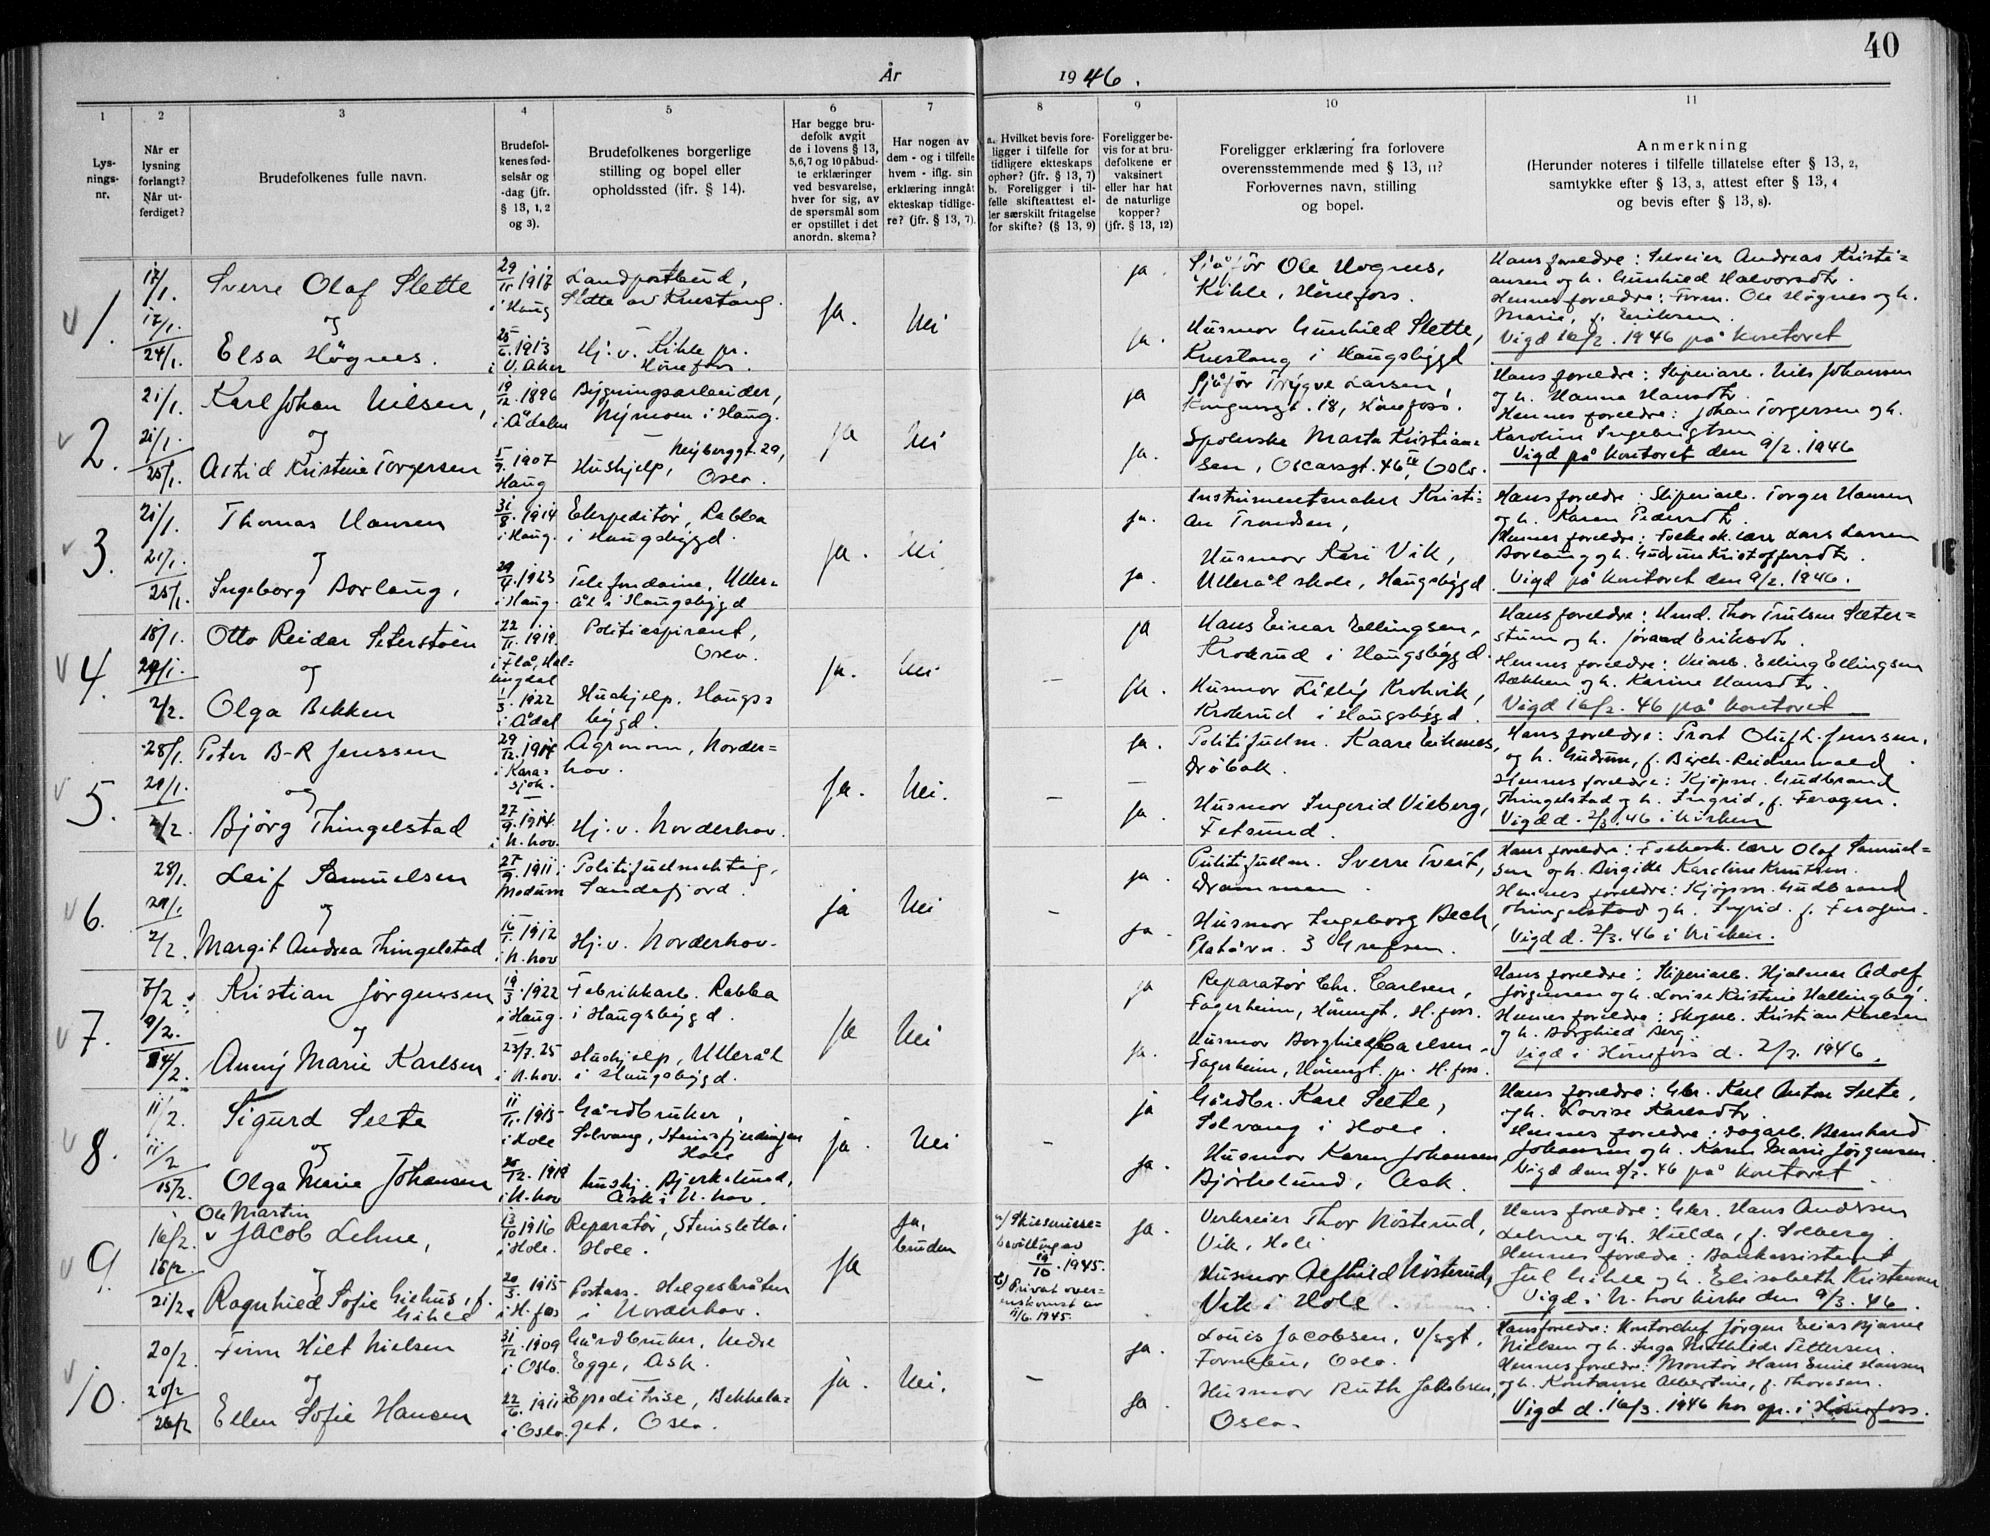 40
År 1946.
1 2 3 4 5 6 7 8 9 10 11
Lys-
nings-
nr.
Når er
lysning
forlangt?
Når ut-
ferdiget?
Brudefolkenes fulle navn.
Brudefol-
kenes fød-
selsår og
-dag (jfr.
§ 13, 1, 2
og 3).
Brudefolkenes borgerlige
stilling og bopel eller
opholdssted (jfr. § 14).
Har begge bru-
defolk avgit
de i lovens § 13,
5,6,7 og 10 påbud-
te erklæringer
ved besvarelse,
hver for sig, av
de spørsmål som
er opstillet i det
anordn. skema?
Har nogen av
dem - og i tilfelle
hvem - iflg. sin
erklæring inngått
ekteskap tidlige-
re? (jfr. § 13, 7).
a. Hvilket bevis fore-
ligger i tilfelle for
tidligere ekteskaps
ophør? (jfr. § 13, 7)
b. Foreligger i til-
felle skifteattest el-
ler særskilt fritagelse
for skifte? (§ 13, 9)
Foreligger be-
vis for at bru-
defolkene er
vaksinert
eller har hat
de naturlige
kopper?
(jfr. § 13, 12)
Foreligger erklæring fra forlovere
overensstemmende med § 13, 11?
Forlovernes navn, stilling
og bopel.
Anmerkning
(Herunder noteres i tilfelle tillatelse efter § 13, 2,
samtykke efter § 13, 3, attest efter § 13, 4
og bevis efter § 13, 8).
1.
17/1.
17/1.
24/1.
Sverre Olaf Slette
og
Elsa Högnes.
29/11 1917
i Haug
25/6. 1913
i V. Aker
Landpostbud,
Slette av Knestang.
Hj. v. Kihle pr.
Hönefoss.
Ja.
Nei
ja.
ja.
Sjåfør Ole Hognes,
Kihle, Hönefoss.
Husmor Gunhild Slette,
Knestang i Haugsbygd
Hans foreldre: Seleier Andreas Kristi=
ansen og h. Gunhild Halvorsdtr.
Hennes foreldre: Form. Ole Högnes og h.
Marie, f. Eriksen.
Vigd 16/2. 1946 på kontoret
2.
21/1.
21/1.
25/1.
Karl Johan Nilsen,
og
Astrid Kristine Torgersen
19/12. 1896
i Ådalen
5/9. 1907
Haug
Bygningsarbeider,
Nymoen i Haug.
Nybergsgt. 29,
Hushjelp, Oslo.
ja
Nei
ja
ja.
Sjåfør Trygve Larsen,
Kongensgt. 18, Hönefoss.
Spolerske Marta Kristian=
sen, Oscarsgt. 46 II, Oslo.
Hans foreldre: Sliperiarb. Nils Johansen
og h. Hanna Hansdtr.
Hennes foreldre: Johan Torgersen og h.
Karoline Ingebrigtsen
Vigd på kontoret den 9/2. 1946
3.
21/1.
21/1.
25/1.
Thomas Hansen
og
Ingeborg Borlaug,
31/8. 1914
i Haug.
29/4. 1923
i Haug.
Ekspeditør, Rabba
i Haugsbygd.
Telefondame, Uller=
ål i Haugsbygd
ja.
Nei
ja.
ja.
Instrumentmaker Kristi=
an Trondsen,
Husmor Kari Vik,
Ullerål skole, Haugsbygd.
Hans foreldre: Sliperiarb. Torger Hansen
og h. Karen Pedersdtr.
Hennes foreldre: Folkesk.lærer Lars Larsen
Borlaug og h. Gudrun Kristoffersdtr.
Vigd på kontoret den 9/2. 1946.
4.
18/1.
29/1.
2/2.
Otto Reidar Seterstöen
og
Olga Bekken
22/11. 1919.
i Flå, Hal=
lingdal
1/3. 1922
i Ådal
Politiaspirant,
Oslo.
Hushjelp. Haugs=
bygd.
ja.
Nei
—
ja
ja.
Hans Einar Ellingsen,
Krokrud i Haugsbygd.
Husmor Lilly Krokvik,
Krokrud i Haugsbygd.
Hans foreldre: Hmd. Thor Trulsen Sæter=
stuen og h. Joraad Eriksdtr.
Hennes foreldre: Veiarb. Elling Ellingsen
Bækken og h. Karine Hansdtr.
Vigd 16/2. 46 på kontoret
5.
28/1.
29/1.
2/2.
Peter B-R Jenssen
og
Björg Thingelstad
29/12. 1914
i Kara=
sjok.
27/9. 1914.
i N. hov.
Agronom, Norder=
hov.
Hj. v. Norderhov.
ja.
Nei.
—
ja.
—
ja.
Politifudm. Kaare Eriknes,
Dröbak.
Husmor Ingerid Vieberg,
Fetsund.
Hans foreldre: Prost Oluf L. Jenssen.
og h. Gudrun, f. Birch-Reichenwald.
Hennes foreldre: Kjöpm. Gudbrand
Thingelstad og h. Ingrid, f. Feragen.
Vigd d. 2/3. 46 i kirken
6.
28/1.
29/1
2/2.
Leif Samuelsen
og
Margit Andrea Thingelstad
27/9. 1911.
Modum
16/1. 1912
i N. hov
Politifudmektig,
Sandefjord.
Hj. v. Norderhov.
ja
Nei
—
ja.
ja.
Politifudm. Sverre Tveit,
Drammen.
Husmor Ingeborg Bech,
Platåvn. 3 Grefsen.
Hans foreldre: Folkesk. lærer Olaf Samuel=
sen og h. Birgitte Karoline Knutsen.
Hennes foreldre: Kjöpm. Gudbrand
Thingelstad og h. Ingrid. f. Feragen.
Vigd d. 2/3. 46 i kirken.
7.
7/2.
9/2.
14/2.
Kristian Jörgensen
og
Anny Marie Karlsen
19/3. 1922
i Haug.
23/7. 25
i N. hov.
Fabrikkarb. Rabba
i Haugsbygd.
Hushjelp, Ullerål
i Haugsbygd.
Ja
Nei
ja
ja.
Reparatør Chr. Carlsen,
Fagerheim, Hönengt. H.foss.
Husmor Borghild Carlsen.
Fagerheim, Hönengt. pr. H. foss.
Hans foreldre: Sliperiarb. Hjalmar Adolf
Jörgensen og h. Lovise Kristine Hallingby.
Hennes foreldre: Skogarb. Kristian Karlsen
og h. Borghild Berg.
Vigd i Hönefoss d. 2/3. 1946.
8.
11/2.
11/2
15/2.
Sigurd Selte
og
Olga Marie Johansen
11/11. 1915
i Hole
20/12. 1919
i N. hov
Gårdbruker,
Solvang, Steinsfjerdingen
Hole
hushj. Bjerkelund,
Ask i N. hov.
ja.
Nei
—
ja
ja.
Gårdbr. Karl Selte,
Solvang i Hole.
Husmor Karen Johansen,
Björkelund, Ask.
Hans foreldre: Gbr. Karl Anton Selte,
og h. Lovise Karlsdtr.
Hennes foreldre: Dagarb. Bernhard
Johansen og h. Karen Marie Jörgensen.
Vigd den 8/3. 46 på kontoret.
9.
16/2.
16/2.
21/2.
Ole Martin
Jacob Lehne,
og
Ragnhild Sofie Giehus, f.
Gihle
13/10 1916
i Hole.
20/3. 1915
i H. foss
Reparatør, Steinsletta i
Hole.
Postass. Helgesbråten
i Norderhov.
ja
ja,
bruden
a/ Skilsmisse=
bevilling av
19/10. 1945.
b/ Privat over=
enskomst av
11/6. 1945.
ja.
Verkseier Thor Nösterud,
Vik, Hole.
Husmor Alfhild Nösterud,
Vik i Hole.
Hans foreldre: Gbr. Hans Andersen
Lehne og h. Hulda, f. Solberg.
Hennes foreldre: Bankassistent
Jul Gihle og h. Elisabeth Kristensen
Vigd i N. hov kirke den 9/3. 46.
10.
20/2.
20/2
26/2
Finn Hilt Nielsen
og
Ellen Sofie Hansen
31/12. 1909
i Oslo.
22/6. 1911
i Oslo.
Gårdbruker, Nedre
Egge, Ask.
Expeditrise, Bekkela=
get, Oslo.
ja.
Nei.
—
ja.
ja.
Louis Jacobsen, V/sgt,
Fornebu, Oslo.
Husmor Ruth Jakobsen,
Oslo.
Hans foreldre: Kontorchef Jörgen Elias Bjarne
Nielsen og h. Inga Mathilde Pettersen.
Hennes foreldre: Montør Hans Emil Hansen
og h. Konstanse Albertine, f. Thoresen.
Vigd d. 16/3. 1946 hos spr. i Hönefoss.